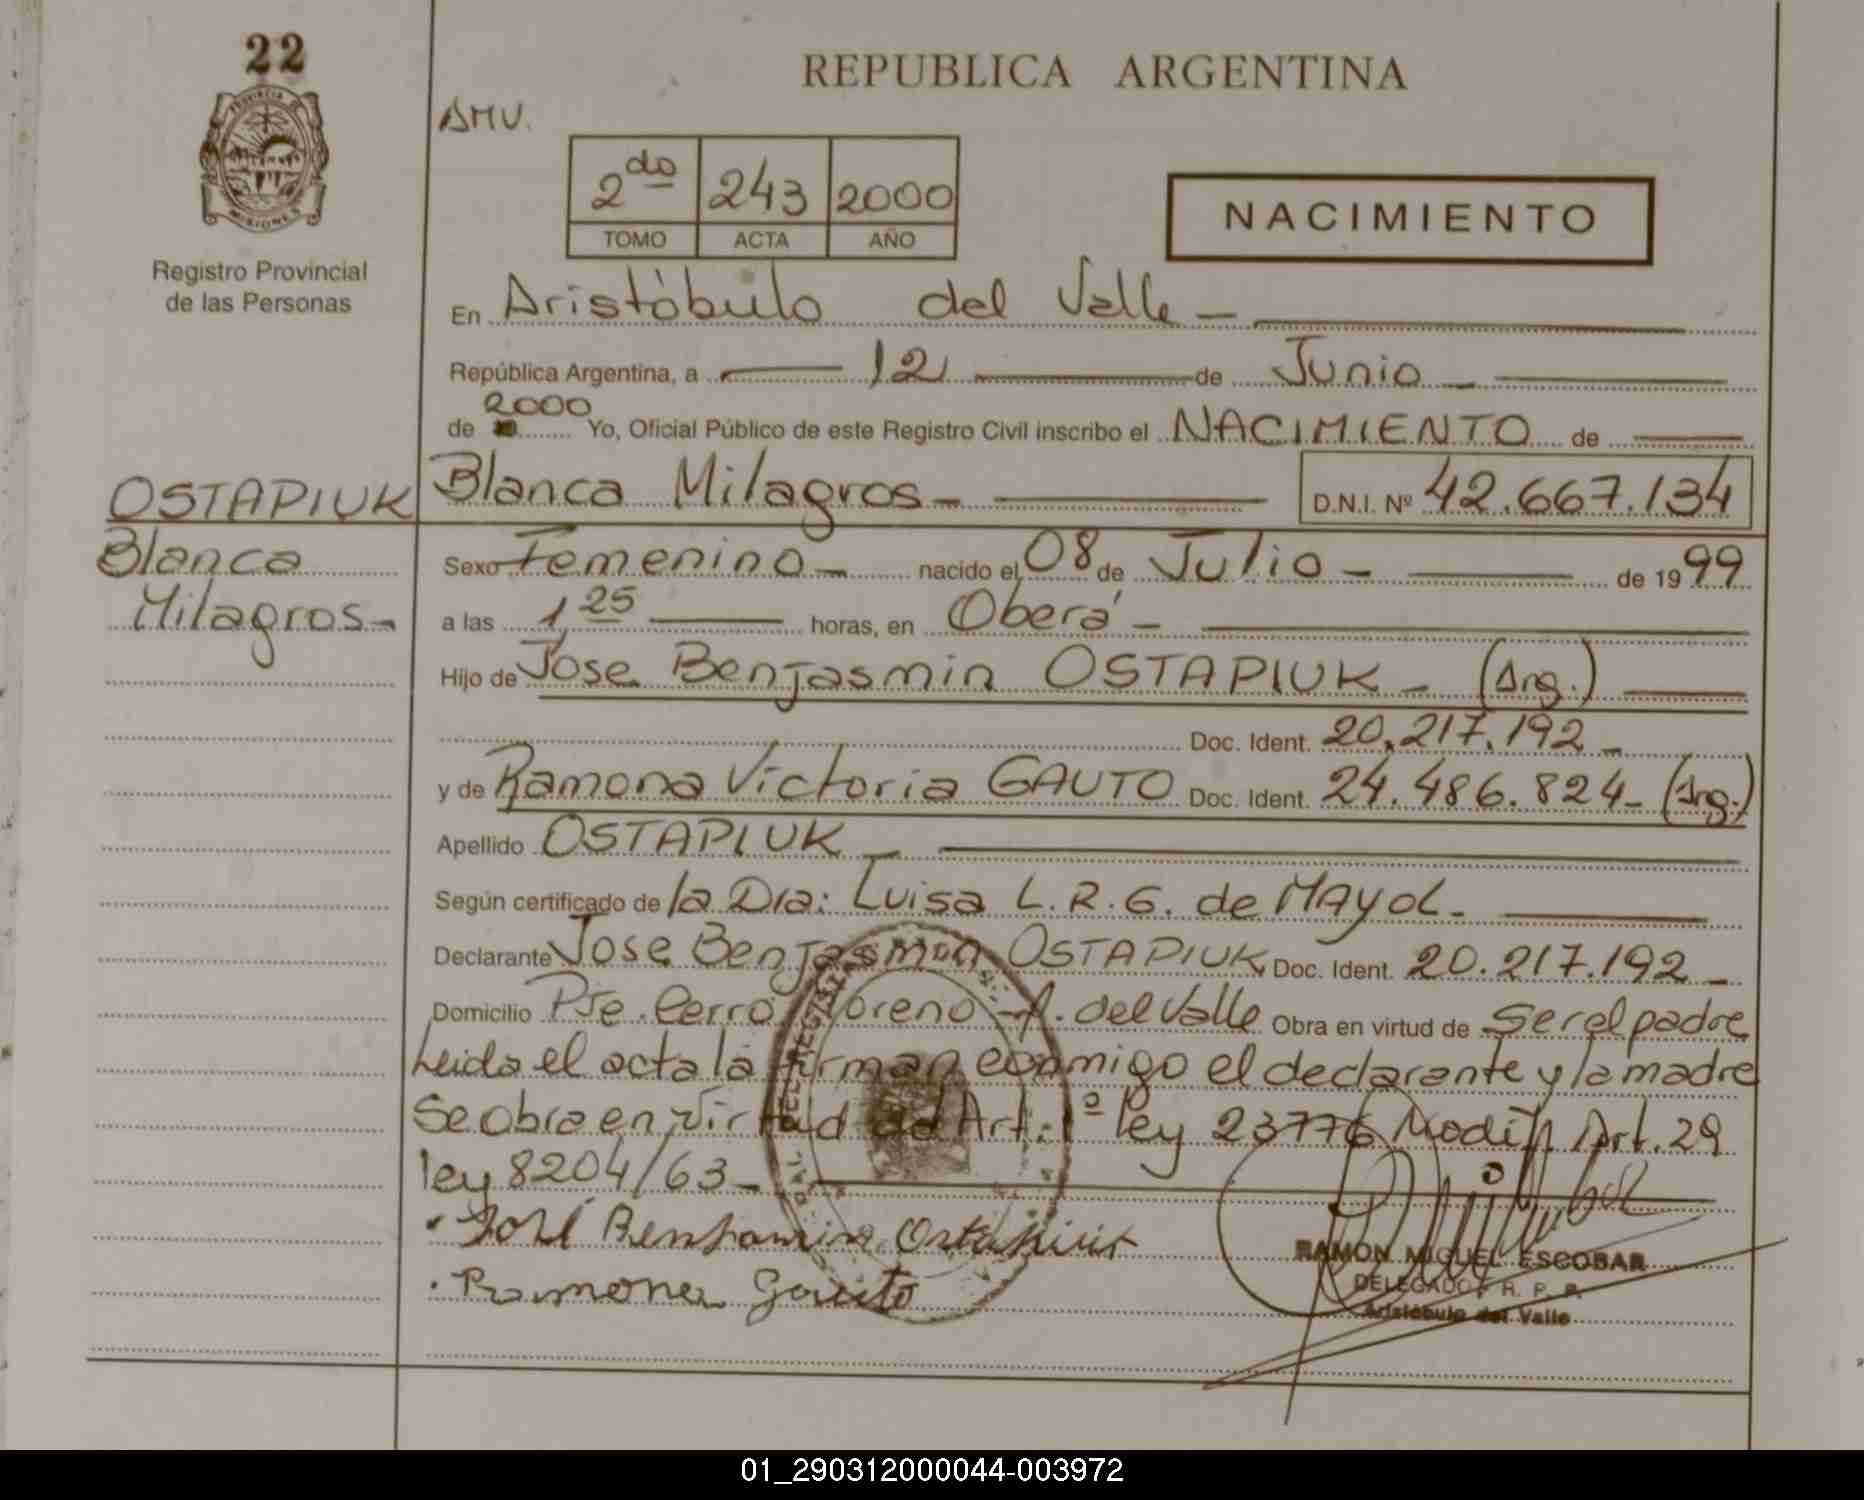 22
PROVINCIA DE
MISIONES
Registro Provincial
de las Personas
OSTAPIUK
Blanca
Milagros-
REPUBLICA ARGENTINA
AMV.
2do 243 2000
TOMO ACTA AÑO
NACIMIENTO
En Aristóbulo del Valle -
República Argentina, a 12 de Junio -
2000
de Yo, Oficial Público de este Registro Civil inscribo el NACIMIENTO de
Blanca Milagros- D.N.I. Nº 42.667.134
Sexo Femenino- nacido el 08 de Julio - de 1999
a las 1 25 horas, en Oberá -
Hijo de Jose Benjasmin OSTAPIUK - (Arg.)
Doc. Ident. 20.217.192 -
y de Ramona Victoria GAUTO Doc. Ident. 24.486.824- (Arg.)
Apellido OSTAPIUK -
Según certificado de la Dra: Luisa L.R.G. de MAyoL-
Declarante Jose Benjasmin OSTAPIUK Doc. Ident. 20.217.192 -
Domicilio Pje. Cerro Moreno - A. del Valle Obra en virtud de Ser el padre
Leida el acta la firman conmigo el declarante y la madre
Se obra en virtud ad Art: 1º ley 23776 Modif Art. 29
ley 8204/63-
. José Benjamin Ostapiuk
. Ramona Gauto
RAMON MIGUEL ESCOBAR
DELEGADO R. P. P.
Aristóbulo del Valle
01_290312000044-003972